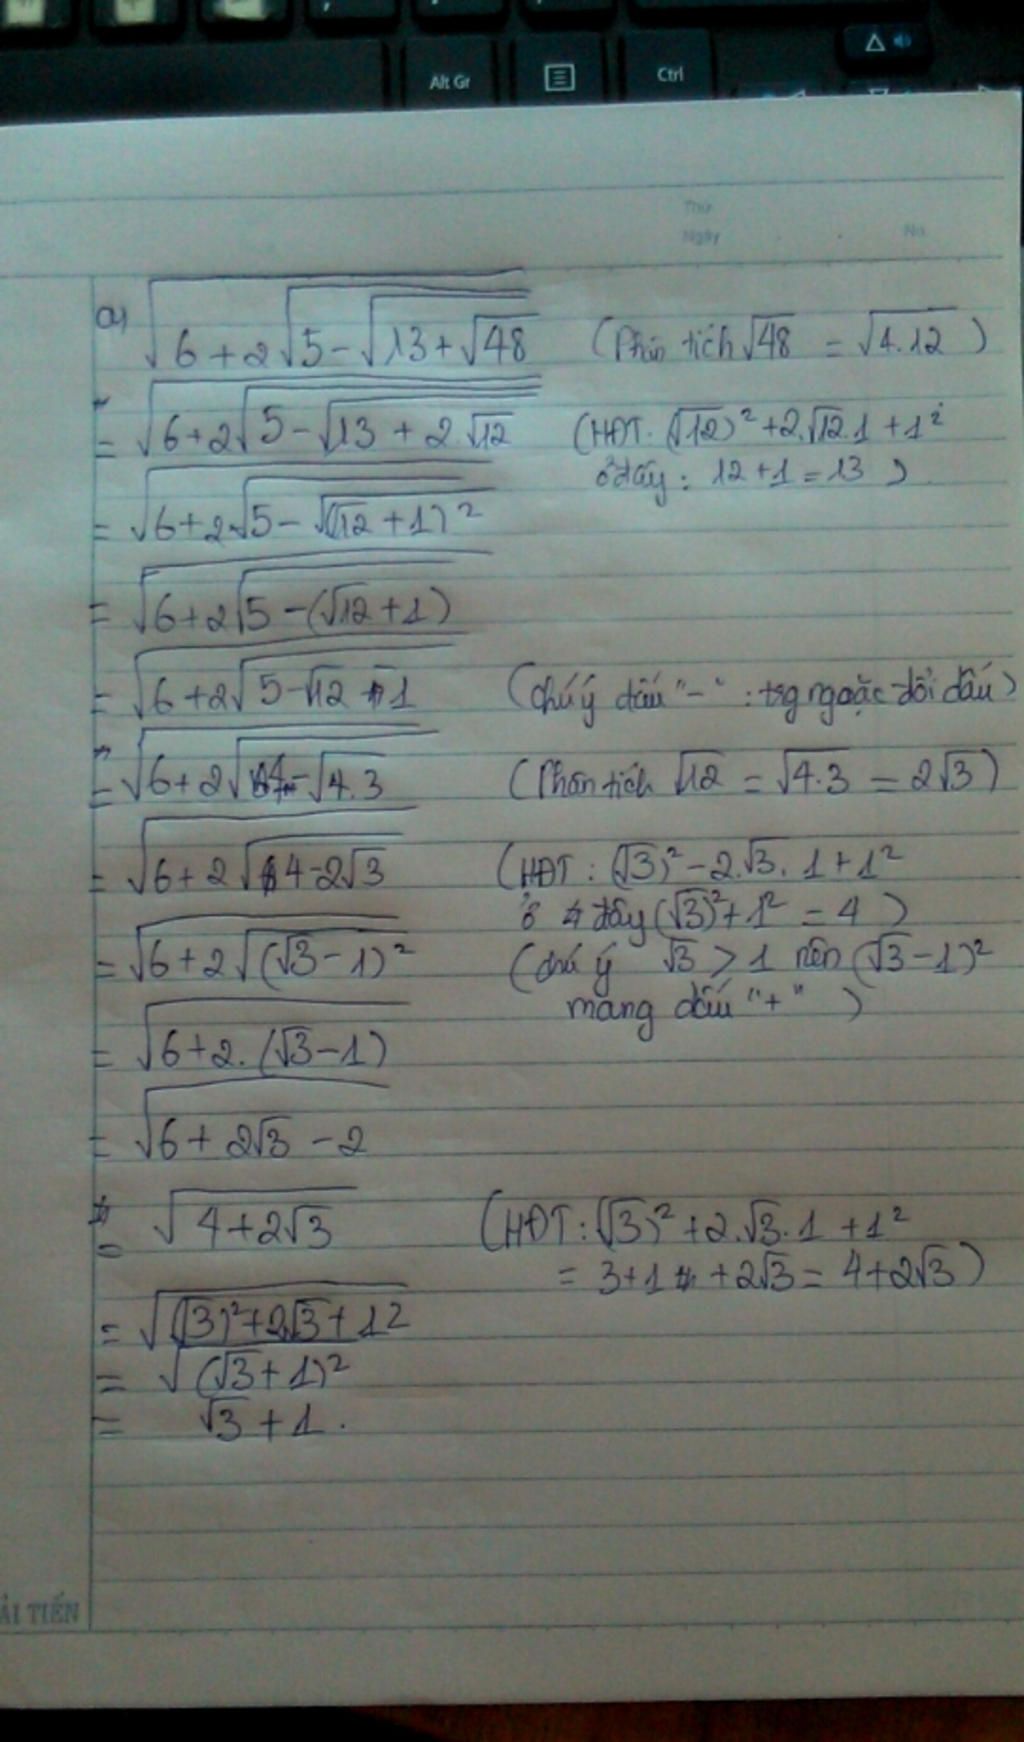 Alt Gr
Ctrl
Thứ
Ngày No
a) √(6 + 2√(5 - √(13 + √48))) (Phân tích √48 = √(4.12))
= √(6 + 2√(5 - √(13 + 2.√12))) (HĐT: (√12)² + 2.√12.1 + 1²
ở đây: 12 + 1 = 13)
= √(6 + 2√(5 - √((√12 + 1)²)))
= √(6 + 2√(5 - (√12 + 1)))
= √(6 + 2√(5 - √12 - 1)) (chú ý dấu "-" : trg ngoặc đổi dấu)
= √(6 + 2√(4 - √(4.3))) (Phân tích √12 = √(4.3) = 2√3)
= √(6 + 2√(4 - 2√3)) (HĐT: (√3)² - 2.√3.1 + 1²
ở đây (√3)² + 1² = 4)
= √(6 + 2√((√3 - 1)²)) (chú ý √3 > 1 nên (√3 - 1)²
mang dấu "+")
= √(6 + 2.(√3 - 1))
= √(6 + 2√3 - 2)
= √(4 + 2√3) (HĐT: (√3)² + 2.√3.1 + 1²
= 3 + 1 + 2√3 = 4 + 2√3)
= √((√3)² + 2√3 + 1²)
= √((√3 + 1)²)
= √3 + 1.
ẢI TIẾN